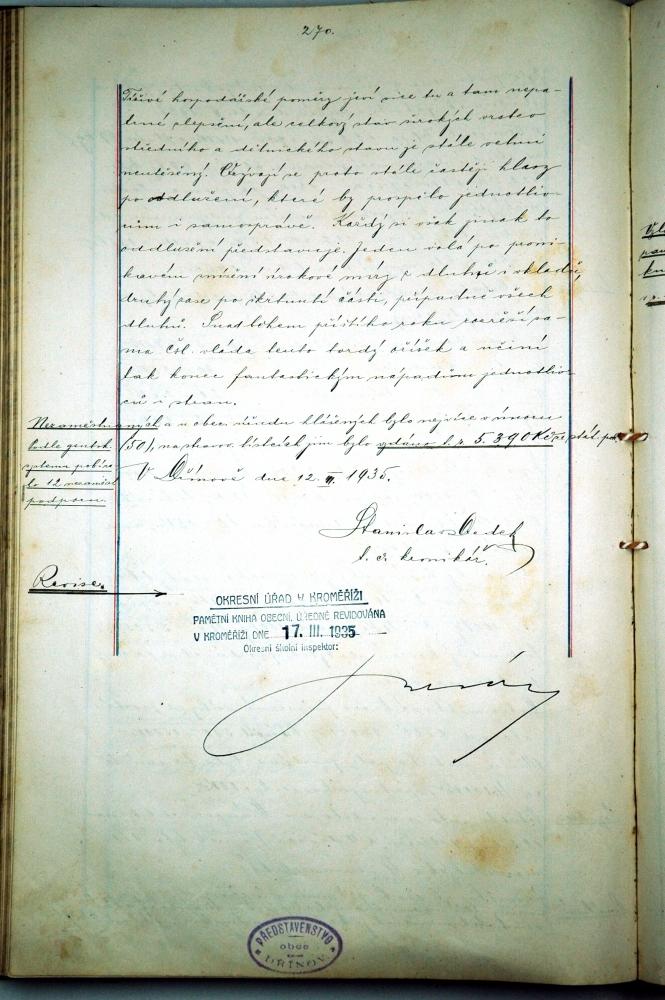 270.
Tíživé hospodářské poměry jeví sice tu a tam nepa-
trné zlepšení, ale celkový stav širokých vrstev
středního a dělnického stavu je stále velmi
neutěšený. Ozývají se proto stále častěji hlasy
po oddlužení, které by prospělo jednotliv-
cům i samosprávě. Každý si však jinak to
oddlužení představuje. Jeden volá po proni-
kavém snížení úrokové míry z dluhů i vkladů,
druhý zase po škrtnutí části, případně všech
dluhů. Snad během příštího roku rozřeší sa-
ma čsl. vláda tento tvrdý oříšek a učiní
tak konec fantastickým nápadům jednotliv-
ců i stran.
Nezaměstnaných a u obec. úřadu hlášených bylo nejvíce v únoru
(50), na stravov. lístcích jim bylo vydáno za 5.390 Kč ze stát. pok.
Podle gentsk.
systemu pobíra-
lo 12 nezaměst.
podporu.
V Dřínově dne 12. III. 1935.
Stanislav
t. č. kronikář.
Revise.
OKRESNÍ ÚŘAD V KROMĚŘÍŽI
PAMĚTNÍ KNIHA OBECNÍ, ÚŘEDNĚ REVIDOVÁNA
V KROMĚŘÍŽI DNE 17. III. 1935
Okresní školní inspektor:
PŘEDSTAVENSTVO
obce
DŘÍNOV